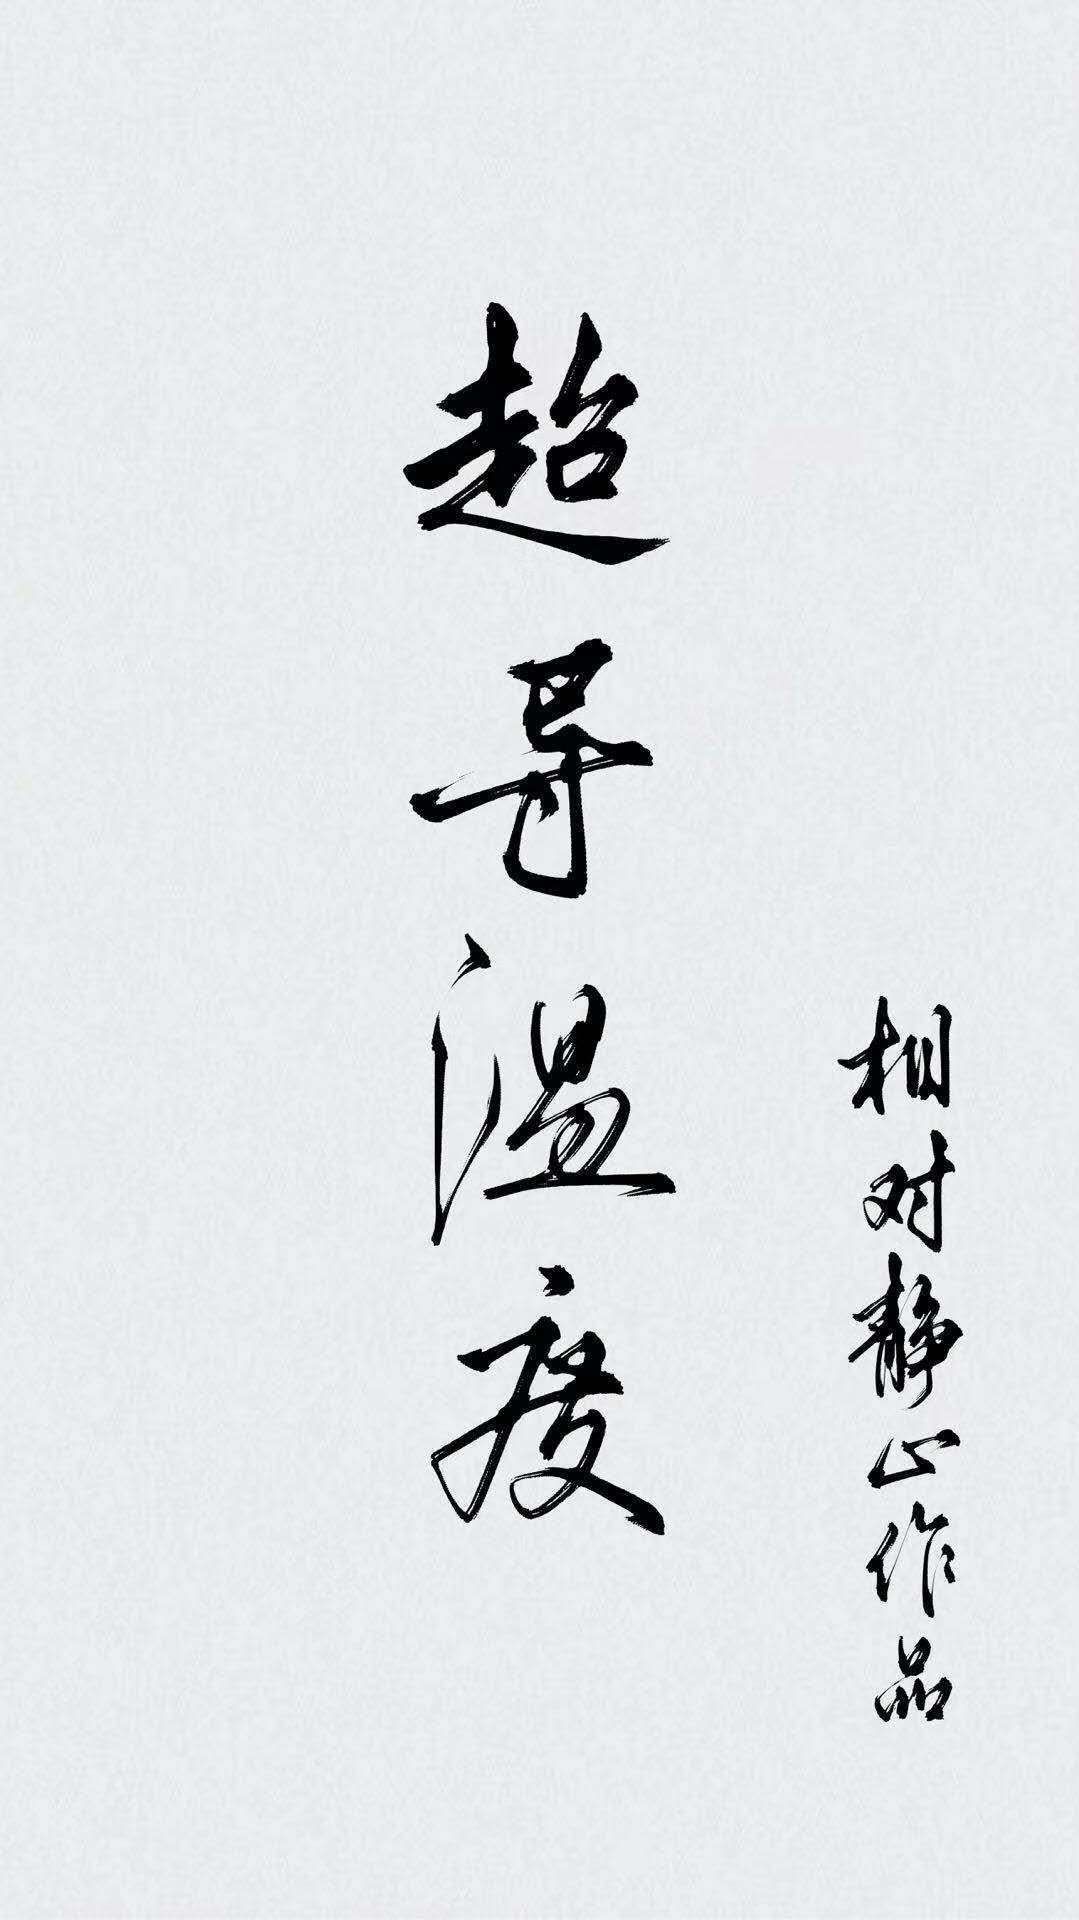 超导温度
相对静止作品